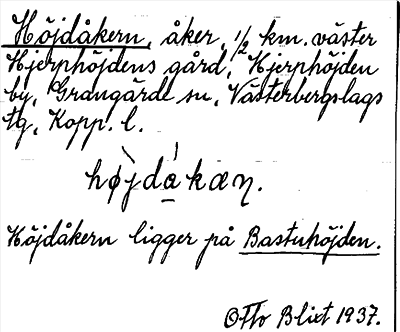 Höjdåkern, åker, 1/2 km. väster
Hjerphöjdens gård, Hjerphöjden
by, Grangärde sn, Västerbergslags
tg, Kopp. l.
hø̀jdákæŋ.
Höjdåkern ligger på Bastuhöjden.
Otto Blixt 1937.